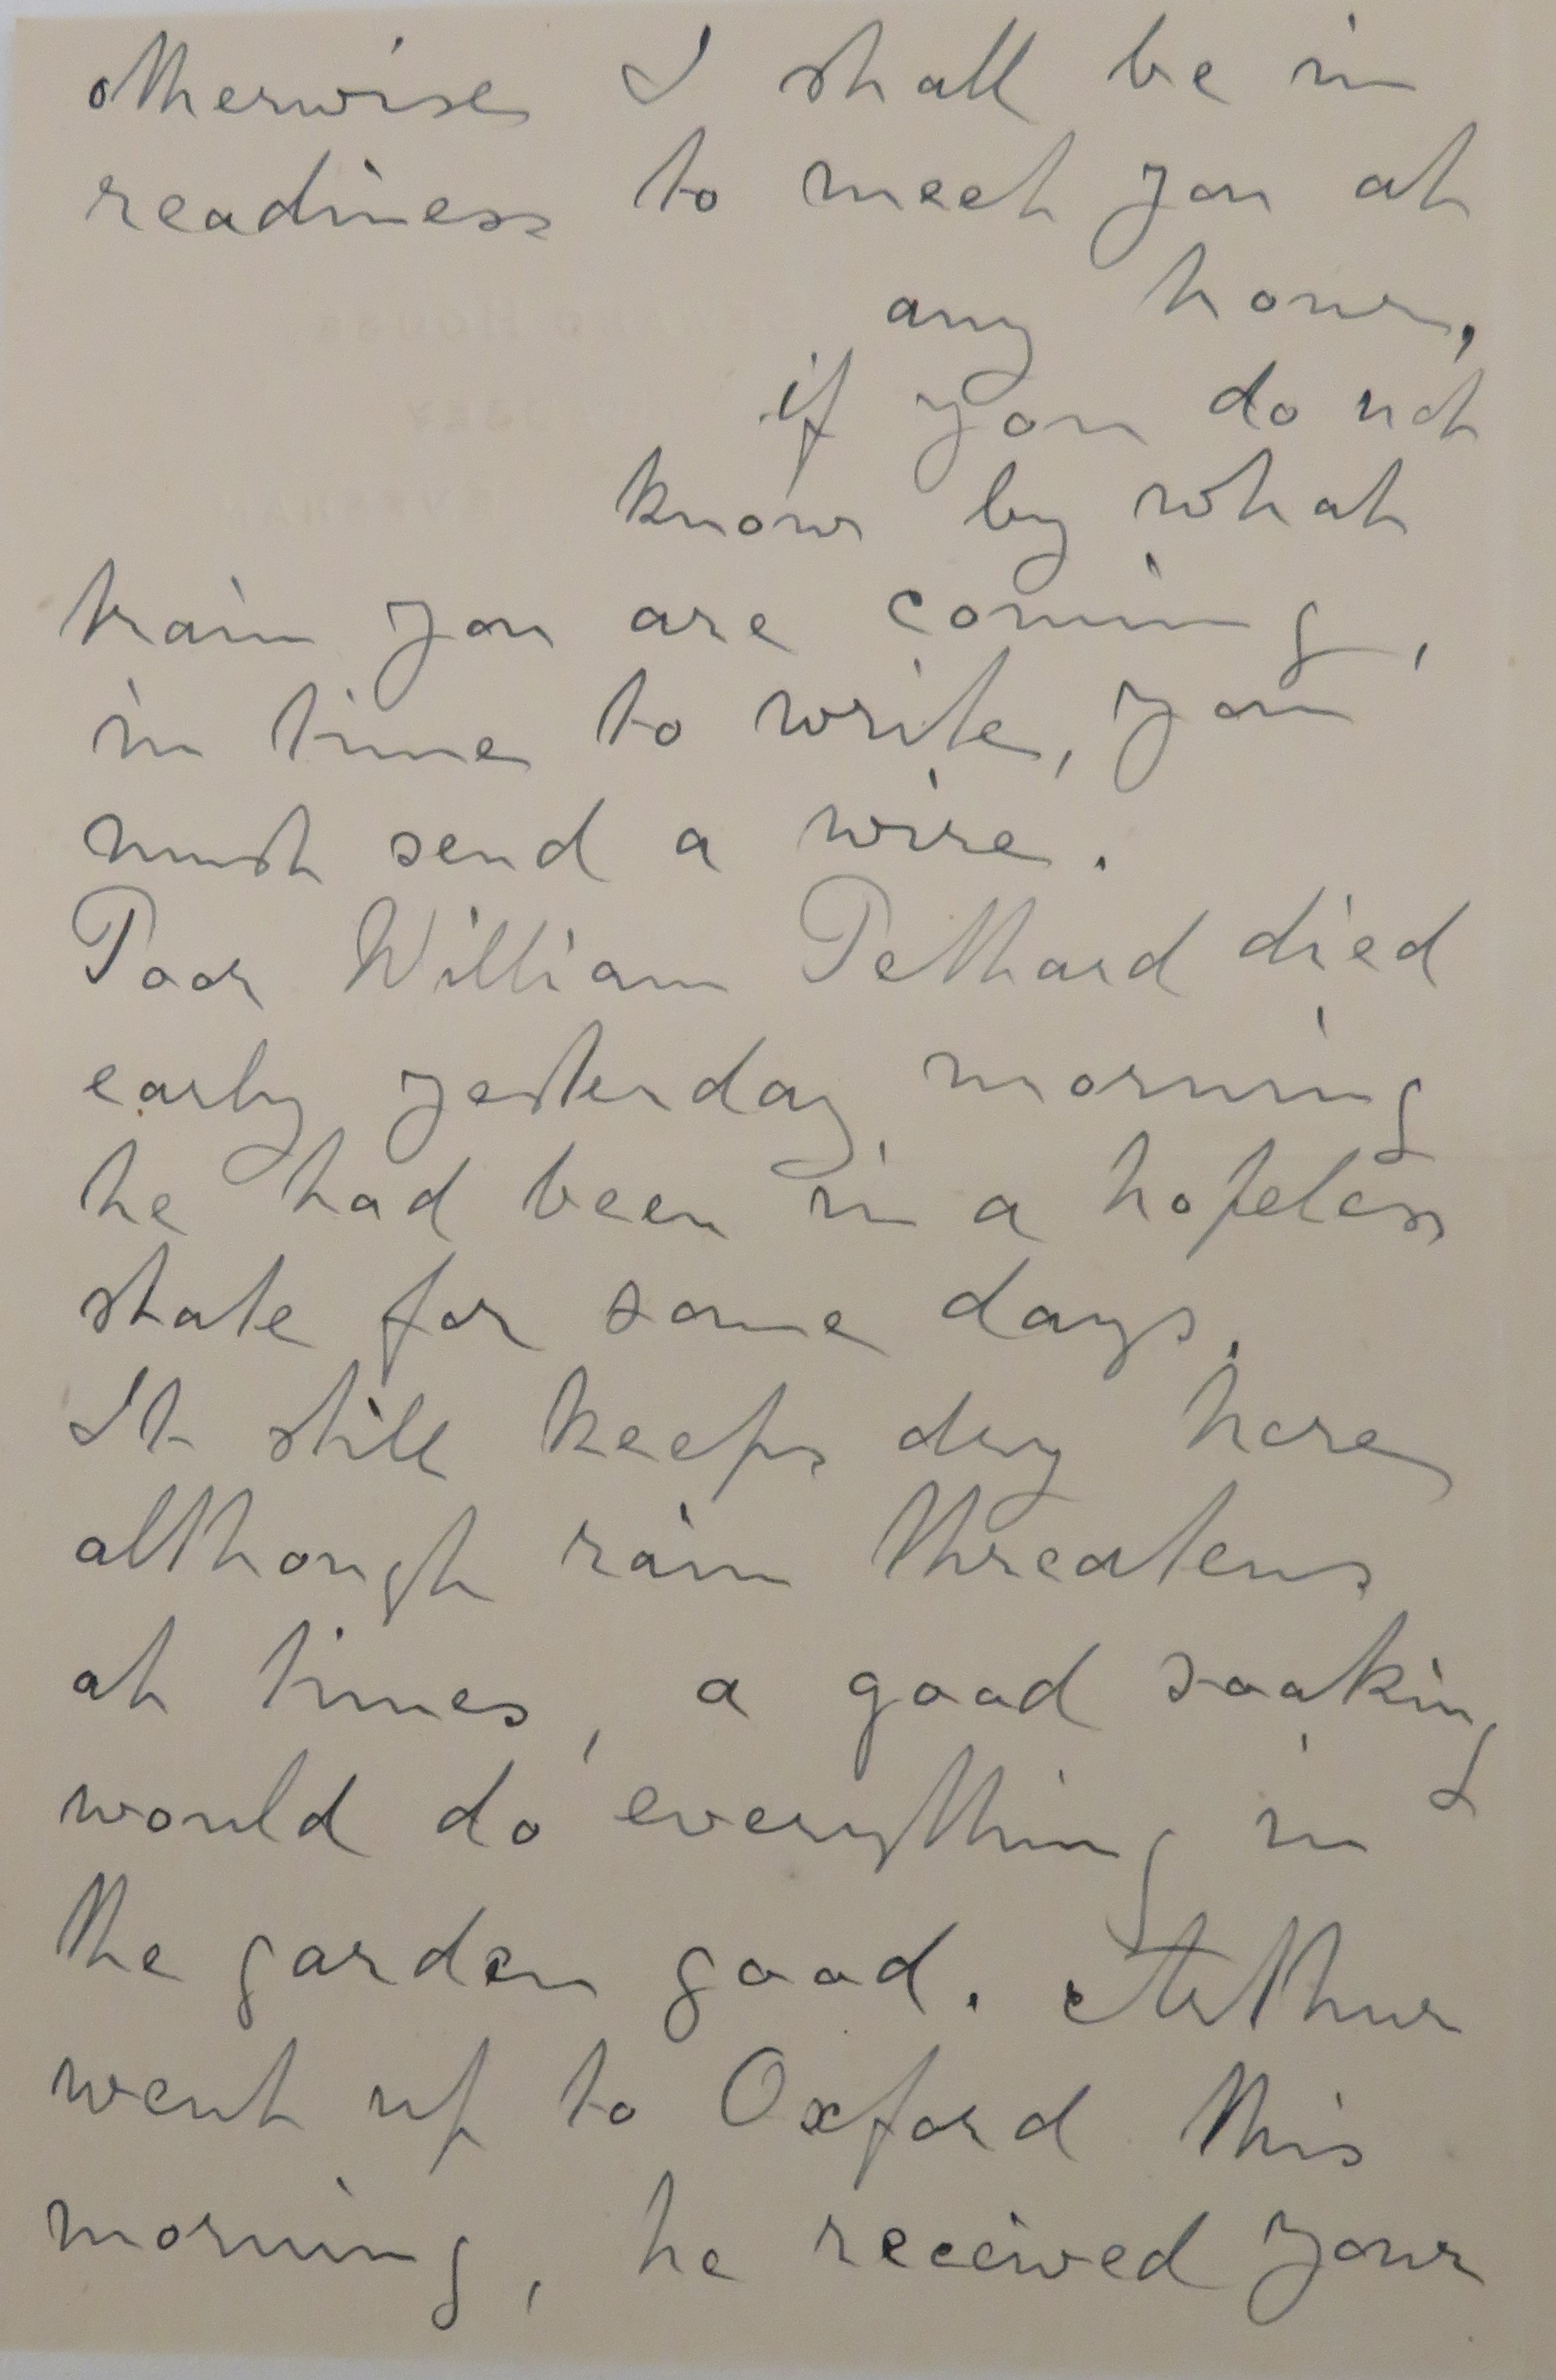 otherwise I shall be in
readiness to meet you at
any hour,
if you do not
know by what
train you are coming,
in time to write, you
must send a wire.
Poor William Pethard died
early yesterday morning
he had been in a hopeless
state for some days.
It still keeps dry here
although rain threatens
at times, a good soaking
would do everything in
the garden good. Arthur
went up to Oxford this
morning, he received your